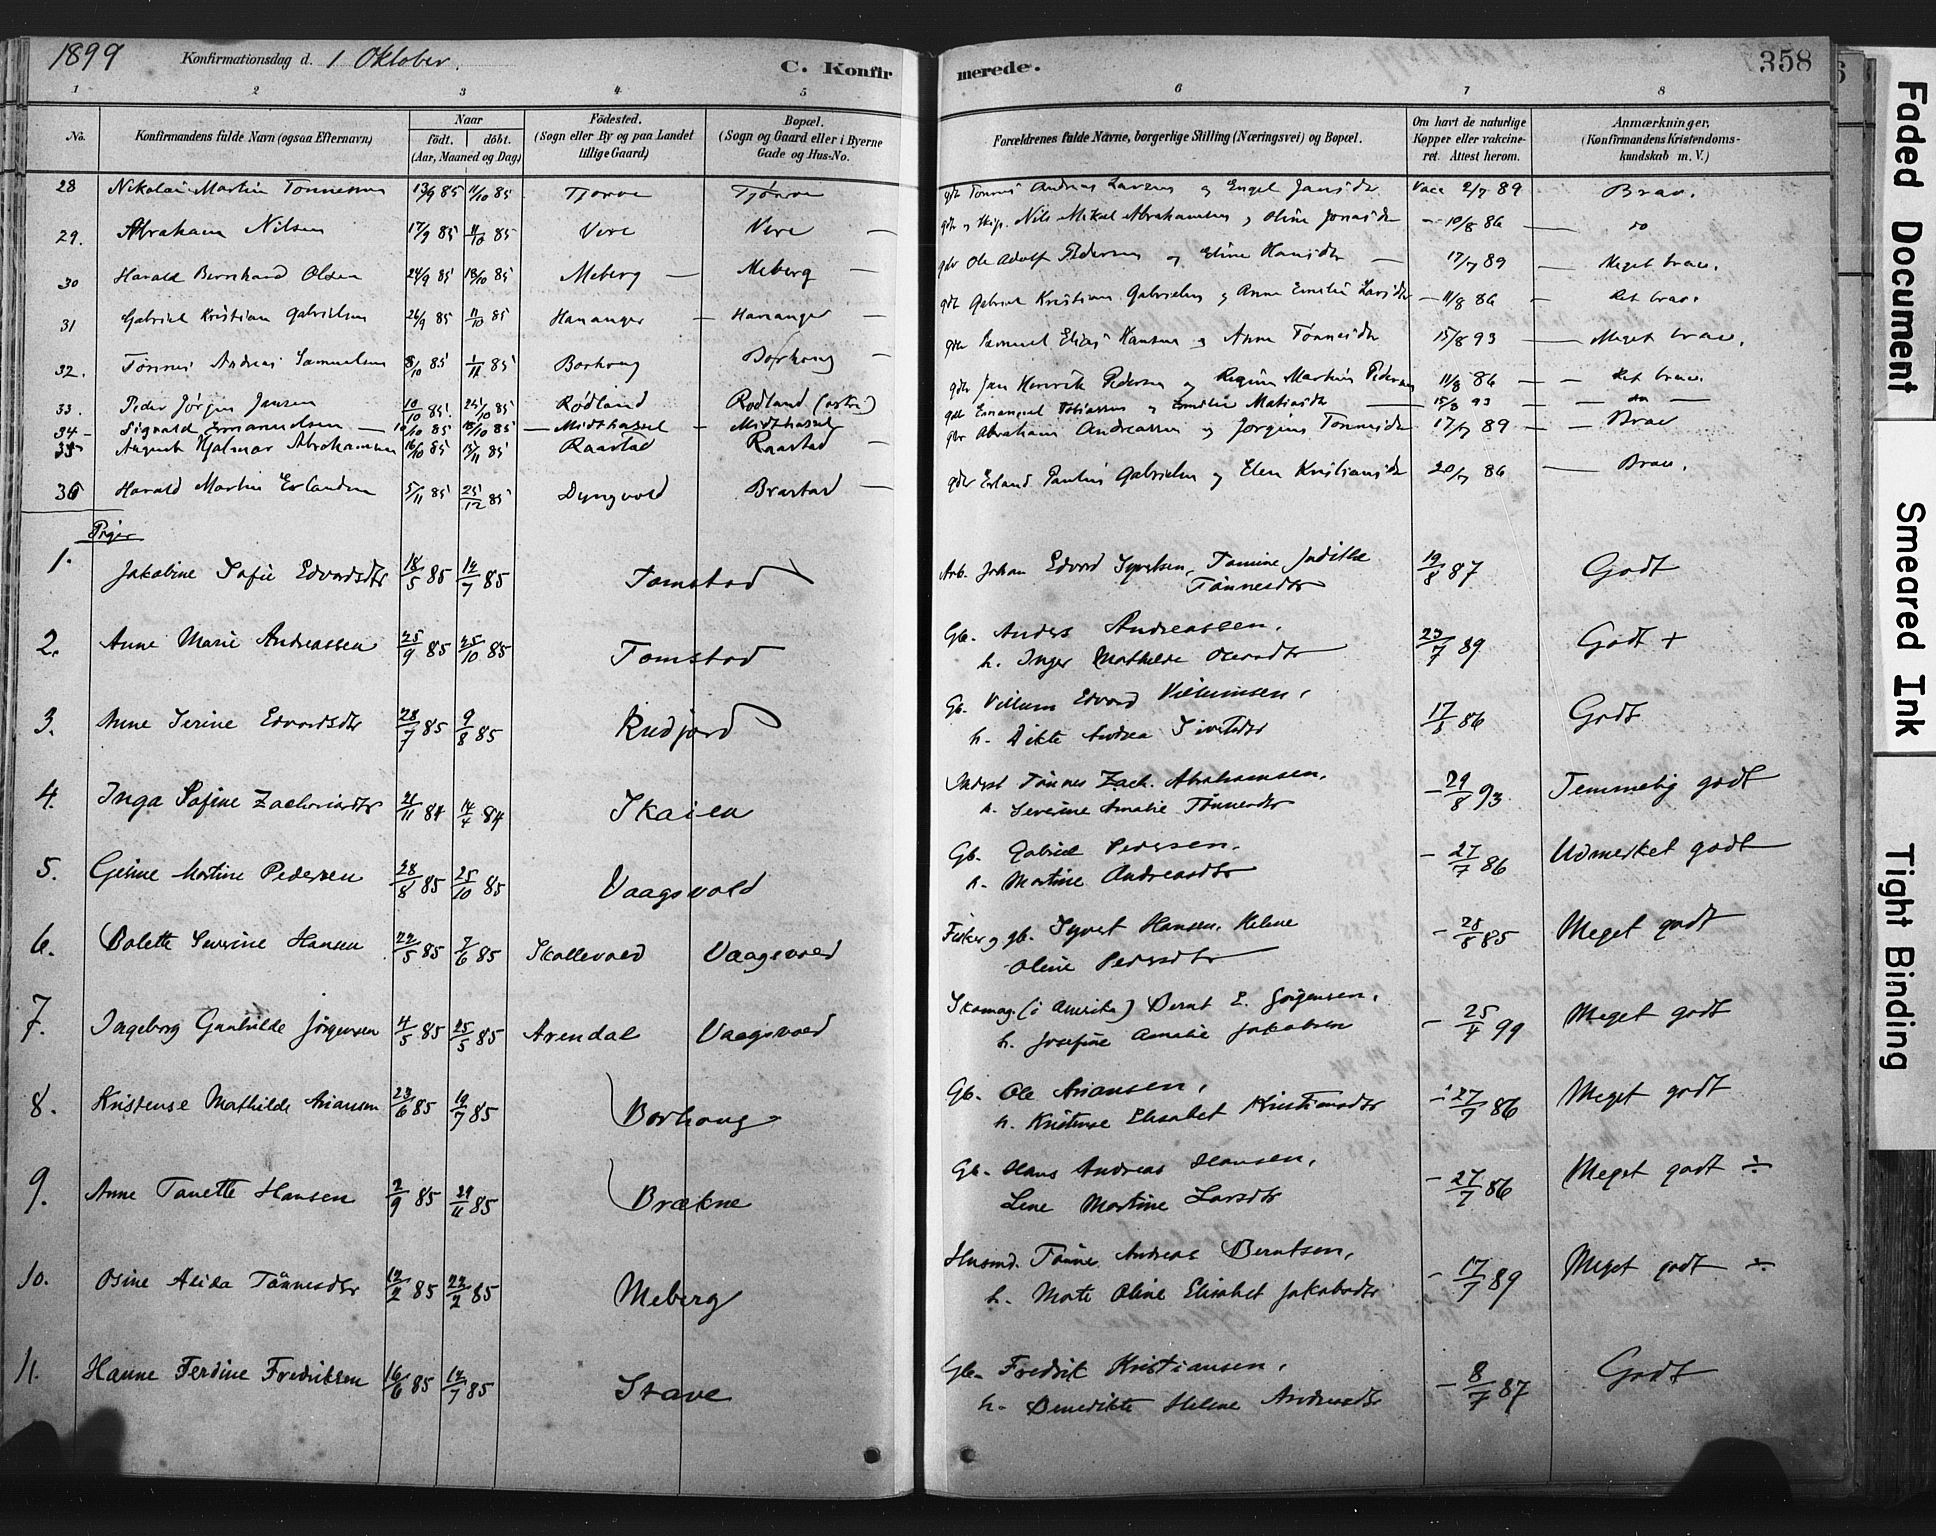 1899 Konfirmationsdag d. 1 Oktober.
C. Konfirmerede.
358
1 2 3 4 5 6 7 8
No. Konfirmandens fulde Navn (ogsaa Efternavn) Naar födt. döbt. (Aar, Maaned og Dag) Födested. (Sogn eller By og paa Landet tillige Gaard) Bopæl. (Sogn og Gaard eller i Byerne Gade og Hus-No. Forældrenes fulde Navne, borgerlige Stilling (Næringsvei) og Bopæl. Om havt de naturlige Kopper eller vakcineret. Attest herom. Anmærkninger. (Konfirmandens Kristendomskundskab m. V.)
28 Nikolai Martin Tønnessen 13/9 85 11/10 85 Tjørve Tjørve gdr Tønnes Andreas Larsen og Engel Jansdtr Vacc 2/7 89 Brav.
29. Abraham Nilsen 17/9 85 11/10 85 Vere Vere — Nils Mikal Abrahamsen og Oline Jonasdtr — 10/8 86 — do
30 Harald Bernhard Olsen 24/9 85 18/10 85 Meberg — Meberg — gdr Ole Adolf Pedersen og Eline Hansdtr — 17/7 89 — Meget brav.
31 Gabriel Kristian Gabrielsen 26/9 85 11/10 85 Hananger — Hananger — gdr Gabriel Kristian Gabrielsen og Anne Emilie Larsdtr — 11/8 86 — Ret brav.
32. Tønnes Andreas Samuelsen 8/10 85 1/11 85 Borhoug Borhoug — gdr Samuel Elias Hansen og Anne Tønnesdtr 15/8 93 — Meget brav.
33. Peder Jørgen Jansen 10/10 85. 25/10 85 Rødland Rødland (østre) gdr Jan Henrik Pedersen og Regine Martine Pedersen 11/8 86 — — Ret brav.
34 — Sigvald Emanuelsen — 10/10 85 18/10 85 — Midthassel — Midthassel gdr Emanuel Tobiassen og Emilie Mathiasdtr — 15/8 93 — — do —
35 August Hjalmar Abrahamsen 16/10 85 15/11 85 Raastad Raastad — gdr Abraham Andreassen og Jørgine Tønnesdtr 17/7 89 — — Brav
36 Harald Martin Erlandsen 5/11 85 25/12 85 Dyngvold Brastad — gdr Erland Paulus Gabrielsen og Elen Kristiansdtr 20/7 86 — Brav.
Piger
1. Jakobine Sofie Edvardsdtr 18/5 85 12/7 85 Tomstad Arb. Johan Edvard Syvertsen, Tomine Judithe 19/8 87 Godt
Tönnesdtr
2. Anne Marie Andreassen 25/9 85 25/10 85 Tomstad Gb. Anders Andreassen. 23/7 89 Godt +
h. Inger Mathilde
3. Anne Serine Edvardsdtr 28/7 85 9/8 85 Kudjord Gb. Villum Edvard Villumsen, 17/8 86 Godt
h. Dikte Andrea Sivertsdtr
4. Inga Sofine Zachariasdtr 84 14/4 84 Skaien Inderst Tönnes Zach. Abrahamsen. — 29/8 93 Temmelig godt
h. Severine Amalie Tönnesdtr
5. Geline Martine Pedersen 28/8 85 25/10 85 Vaagsvold Gb. Gabriel Pedersen. — 27/7 86 Udmerket godt
h. Martine Andreasdtr
6. Bolette Severine Hansen 22/5 85 7/6 85 Skollevold Vaagsvold Fisker og gb. Syvert Hansen, Helene — 25/8 85 Meget godt
Oline Pedersdtr
7. Ingeborg Gunhilde Jörgensen 4/5 85 25/5 85 Arendal Vaagsvold Skomag. (i Amerika) Bernt E. Jörgensen, — 25/4 99 Meget godt
h. Josefine Amalie Jakobsen
8. Kristense Mathilde Ariansen 23/6 85 19/7 85 Borhoug Gb. Ole Ariansen, — 27/7 86 Meget godt
h. Kristense Elisabet Kristiansdtr
9. Anne Tanette Hansen 2/9 85 29/11 85 Brækne Gb. Hans Andreas Hansen, — 27/7 86 Meget godt ÷
Lene Martine Larsdtr
10. Osine Alida Tönnesdtr 12/2 85 22/2 85 Meberg Husmd. Tönnes Andreas Berntsen, — 17/7 89 Meget godt ÷
h. Marte Oline Elisabet Jakobsdtr
11. Hanne Ferdine Fredriksen 16/6 85 12/7 85 Stave Gb. Fredrik Kristiansen, — 8/7 87 Godt
h. Benedikte Helene Andreasdtr
Faded Document
Smeared Ink
Tight Binding